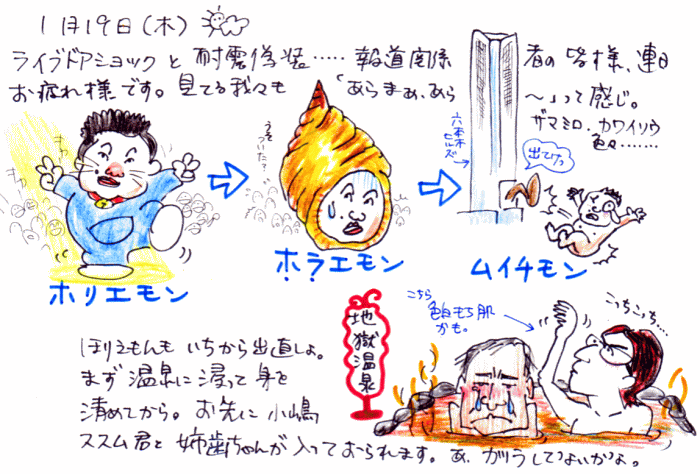 1月19日(木)
ライブドアショックと耐震偽装‥‥‥報道関係者の皆様、連日
お疲れ様です。見てる我々も「あらまぁ、あら
〜」って感じ。
ザマミロ・カワイソウ
色々………
うそついた?
六本木ヒルズ
出てけっ
ホリエモン
ホラエモン
ムイチモン
こちら
色白もち肌
かも。
こっちこっち…
地獄温泉
ほりえもんも いちから出直しょ。
まず 温泉に浸って身を
清めてから。お先に 小嶋
ススム君と 姉歯ちゃんが入っておられます。あ、カツラしてっよいかっょ。